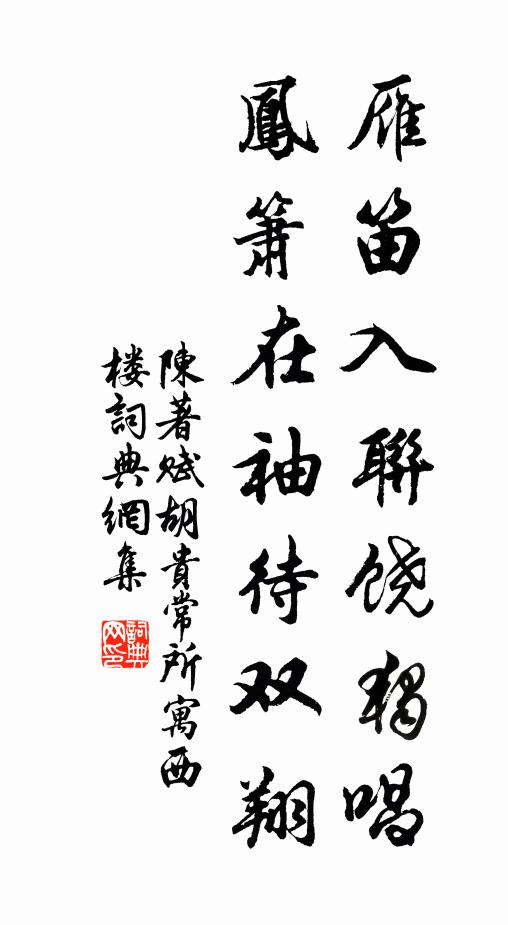 雁笛入聯饶獨唱
鳳簫在袖待双翔
陳著赋胡貴常所寓西
楼詞典網集
詞典网印